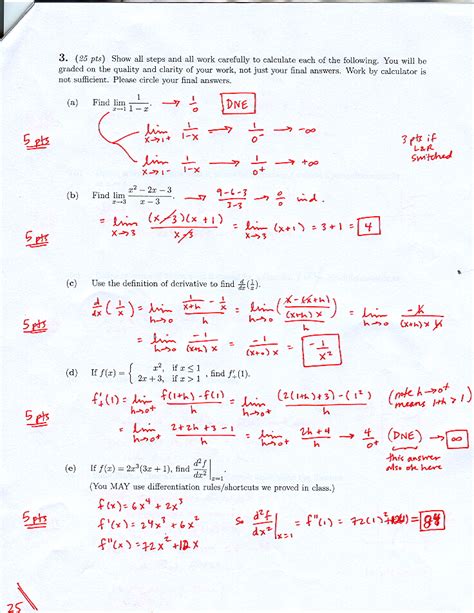 3. (25 pts) Show all steps and all work carefully to calculate each of the following. You will be
graded on the quality and clarity of your work, not just your final answers. Work by calculator is
not sufficient. Please circle your final answers.
(a) Find lim x→1 1/(1−x). → 1/0 DNE
lim x→1+ 1/(1-x) → 1/0- → -∞
5 pts
3 pts if
L&R
switched
lim x→1- 1/(1-x) → 1/0+ → +∞
(b) Find lim x→3 (x² − 2x − 3)/(x − 3). → (9-6-3)/(3-3) → 0/0 ind.
5 pts
= lim x→3 (x-3)(x+1)/(x-3) = lim x→3 (x+1) = 3+1 = 4
(c) Use the definition of derivative to find d/dx(1/x).
5 pts
d/dx (1/x) = lim h→0 (1/(x+h) - 1/x)/h = lim h→0 ((x-(x+h))/((x+h)x))/h = lim h→0 -h/((x+h)x h)
= lim h→0 -1/((x+h)x) = -1/((x+0)x) = -1/x²
(d) If f(x) = { x², if x ≤ 1
2x + 3, if x > 1 , find f′₊(1).
5 pts
f'₊(1) = lim h→0+ (f(1+h)-f(1))/h = lim h→0+ ((2(1+h)+3)-(1²))/h (note h→0+
means 1+h > 1)
= lim h→0+ (2+2h+3-1)/h = lim h→0+ (2h+4)/h → 4/0+ (DNE) → ∞
this answer
also ok here
(e) If f(x) = 2x³(3x + 1), find d²f/dx² |x=1.
(You MAY use differentiation rules/shortcuts we proved in class.)
5 pts
f(x) = 6x⁴ + 2x³
f'(x) = 24x³ + 6x²
f"(x) = 72x² + 12x
so d²f/dx² |x=1 = f"(1) = 72(1)² = 84
25